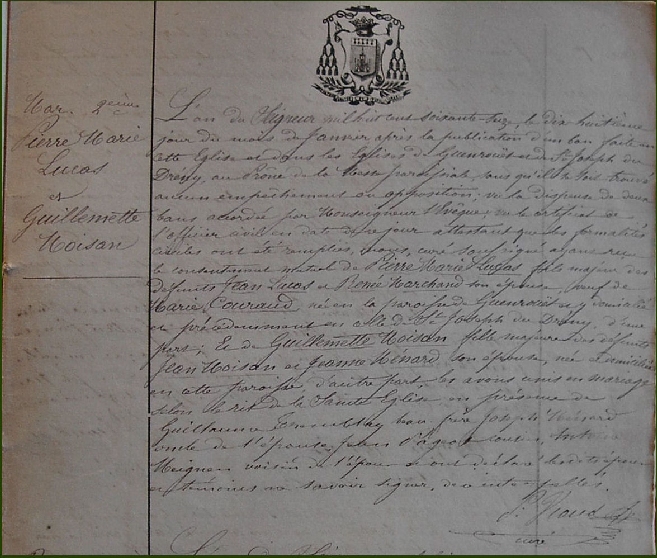 Mar. 2ème
Pierre Marie
Lucas
et
Guillemette
Moisan
L'an du Seigneur mil huit cent soixante le dix huitième
jour du mois de Janvier après la publication d'un ban faite en
cette Eglise et dans les Eglises de Guenrouët et de St Joseph du
Dreny, au Prône de la Messe paroissiale, sans qu'il se soit trouvé
aucun empêchement ou opposition; vu la dispense de deux
bans accordée par Monseigneur l'Evêque; vu le certificat de
l'officier civil en date de ce jour attestant que les formalités
civiles ont été remplies, nous, curé soussigné ayant reçu
le consentement mutuel de Pierre Marie Lucas fils majeur des
défunts Jean Lucas et Renée Marchand son épouse, veuf de
Marie Couraud, né en la paroisse de Guenrouët et y domicilié
et précédemment en celle de St Joseph du Dreny, d'une
part; Et de Guillemette Moisan fille majeure des défunts
Jean Moisan et Jeanne Ménard son épouse, née et domiciliée
en cette paroisse d'autre part, les avons unis en mariage
selon le rit de la Sainte Eglise en présence de
Guillaume beau frère Joseph Ménard
oncle de l'épouse, Jean cousin, Antoine
voisin de l'époux qui ont déclaré
et témoins ne savoir signer, de ce interpellés.
curé
L'an du